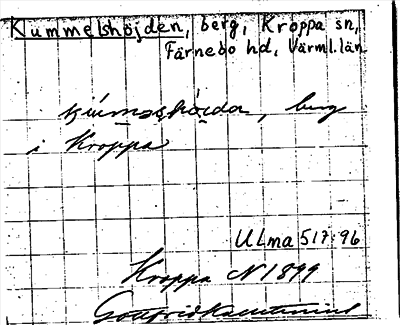 Kummelshöjden, berg, Kroppa sn,
Färnebo hd, Värml. län
berg
i Kroppa
ULma 517:96
Kroppa N 1899